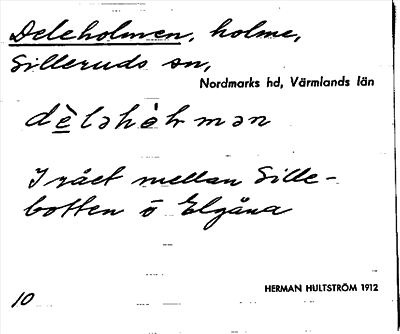 Deleholmen, holme,
Silleruds sn,
Nordmarks hd, Värmlands län
dè̱ləhòlmən
I rået mellan Sille-
botten o Elgåna
HERMAN HULTSTRÖM 1912
10